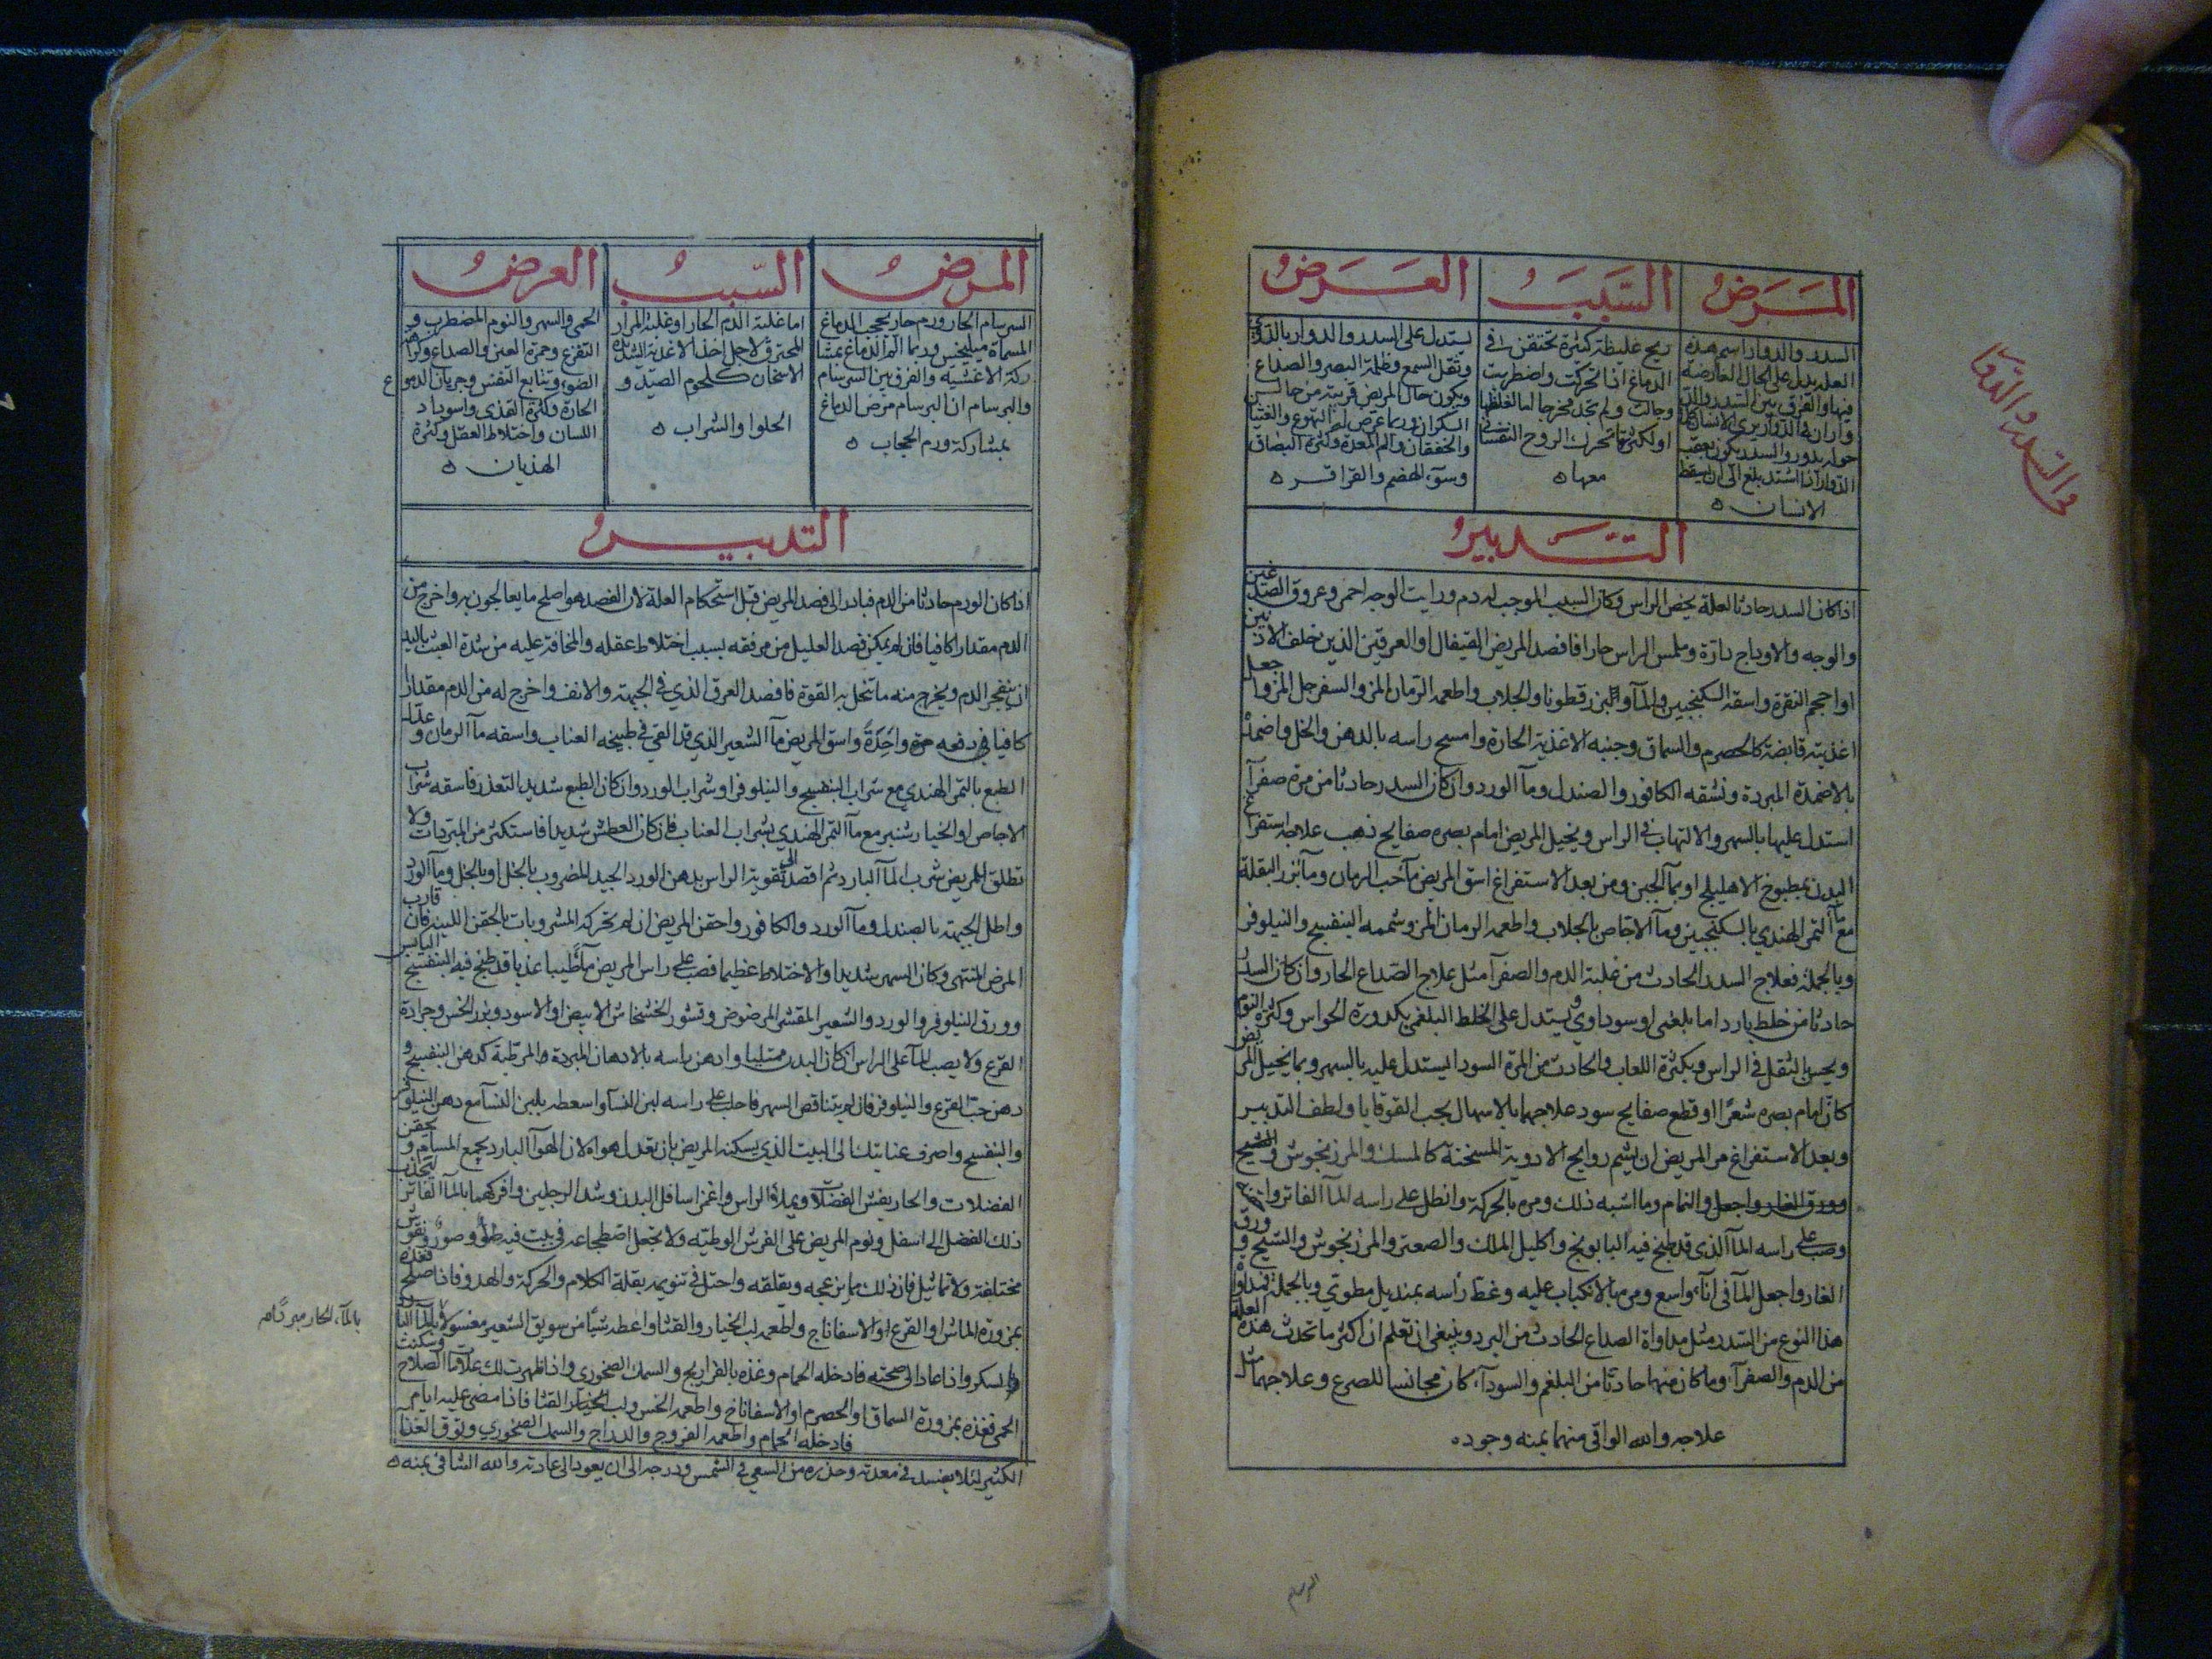 في السدر والدوار
المَرَضُ
السَّبَبُ
العَرَضُ
السدر والدوار اسم هذه
العلة يدل على الحال العارضة
فيها والفرق بين السدر والد
وار ان في الدوار يرى الانسان كلما
حوله يدور والسدر يكون بعقب
الدوار اذا اشتد بلغ الى ان يسقط
الانسان ه
ريح غليظة كثيرة تختنق في
الدماغ اذا تحركت واضطربت
وجالت ولم تجد مخرجا اما لغلظها
او لكثرتها تحرك الروح النفساني
معها ه
يستدل على السدر والدوار بالدوي
وثقل السمع وظلمة البصر والصداع
ويكون حال المريض قريبة من حال
السكران وربما عرض له التهوع والغثيا
والخفقان والم المعدة وكثرة البصاق
وسوء الهضم والقراقر ه
التدبيرُ
اذا كان السدر حادثا لعلة يخص الراس وكان السبب الموجب له دم ورايت الوجه احمر وعروق الصدغين
والوجه والاوداج دارّة وملمس الراس حارا فافصد المريض القيفال او العرقين الذين خلف الاذنين
او احجم النقرة واسقه السكنجبين والماء والبزرقطونا والجلاب واطعمه الرمان المز والسفرجل المز واجعل
اغذيته قابضة كالحصرم والسماق وجنبه الاغذية الحارة وامسح راسه بالدهن والخل واضمد
بالاضمدة المبردة ونشقه الكافور والصندل وماء الورد وان كان السدر حادثا من مرة صفرآ
استدل عليها بالسهر والالتهاب في الراس ويخيل المريض امام بصره صفايح ذهب علاجه استفراغ
البدن بمطبوخ الاهليلج او بماء الجبن ومن بعد الاستفراغ اسق المريض ماء حب الرمان وماء بزر البقلة
مع ماء التمر الهندي بالسكنجبين وماء الاجاص بالجلاب واطعمه الرمان المز وشممه البنفسج والنيلوفر
وبالجملة فعلاج السدر الحادث من غلبة الدم والصفرآ مثل علاج الصداع الحار وان كان السدر
حادثا من خلط بارد اما بلغمي او سوداوي ويستدل على الخلط البلغمي بكدورة الحواس وكثرة النوم
ويحس بالثقل في الراس وبكثرة اللعاب والحادث من المرة السودا يستدل عليه بالسهر وبما يخيل المريض
كان امام بصره شعرًا او قطع صفايح سود علاجهما بالاسهال بحب القوقايا ولطف التدبير
وبعد الاستفراغ مر المريض ان يشم روايح الادوية المسخنة كالمسك والمرزنجوش والشيح
وورق الغار واجعل والنمام وما اشبه ذلك ومره بالحركة وانطل على راسه الماء الفاتر
وصب على راسه الماء الذي قد طبخ فيه البابونج واكليل الملك والصعتر والمرزنجوش والشيح وورق
الغار واجعل الماء في اناء واسع ومره بالانكباب عليه وغط راسه بمنديل مطوي وبالجملة فمداواة
هذا النوع من السدر مثل مداواة الصداع الحادث من البرد وينبغي ان تعلم ان اكثر ما تحدث هذه العلة
من الدم والصفرآء وما كان منها حادثا من البلغم والسودآء كان مجانسا للصرع وعلاجهما مثل
علاجه والله الواقي منهما بمنه وجوده
السرسام
المرضُ
السّببُ
العرضُ
السرسام الحار ورم حار بحجب الدماغ
المسماة مينينجس وربما الم الدماغ بمشا
ركة الاغشية والفرق بين السرسام
والبرسام ان البرسام مرض الدماغ
بمشاركة ورم الحجاب ه
اما غلبة الدم الحار او غلبة المرار
المحترق لاجل اخذ الاغذية الشديدة
الاسخان كلحوم الصيد و
الحلوا والشراب ه
الحمى والسهر والنوم المضطرب و
التفزع وحمرة العين والصداع وكراهة
الضوء وتتابع النفس وجريان الدموع
الحارة وكثرة القذى واسوداد
اللسان واختلاط العقل وكثرة
الهذيان ه
التدبيرُ
اذا كان الورم حادثا من الدم فبادر الى فصد المريض قبل استحكام العلة لان الفصد هو اصلح ما يعالجون به واخرج من
الدم مقدارا كافيا فان لم يمكن فصد العليل من مرفقه بسبب اختلاط عقله والمخافة عليه من شدة العبث باليد
ان ينفجر الدم ويخرج منه ما تنحل به القوة فافصد العرق الذي في الجبهة والانف واخرج له من الدم مقدارا
كافيا في دفعه مرة واحدة واسق المريض ماء الشعير الذي قد القي في طبيخه العناب واسقه ماء الرمان وعدل
الطبع بالتمر الهندي مع شراب البنفسج والنيلوفر او شراب الورد وان كان الطبع شديد التعذر فاسقه شراب
الاجاص او الخيارشنبر مع ماء التمر الهندي بشراب العناب فان كان العطش شديدا فاستكثر من المبردات ولا
تطلق للمريض شرب الماء البارد ثم اقصد الى تقوية الراس بدهن الورد الجيد المضروب بالخل او بالخل وماء الورد
واطل الجبهة بالصندل وماء الورد والكافور واحقن المريض ان لم تحركه المشروبات بالحقن اللينة فان قارب
المرض المنتهى وكان السهر شديدا والاختلاط عظيما فصب على راس المريض ماء طيبا عذبا قد طبخ فيه البنفسج اليابس
وورق النيلوفر والورد والشعير المقشر المرضوض وقشور الخشخاش الابيض او الاسود وبزر الخس وجرادة
القرع ولا يصب الماء على الراس ان كان البدن ممتليا وادهن راسه بالادهان المبردة المرطبة كدهن البنفسج و
دهن حب القرع والنيلوفر فان لم يتناقص السهر فاحلب على راسه لبن النسآ واسعطه بلبن النسآ مع دهن النيلوفر
والبنفسج واصرف عنايتك الى البيت الذي يسكنه المريض بان تعدل هواه لان الهوآ البارد يجمع المسام ويحقن
الفضلات والحار يفش الفضلات ويملأ الراس واغمز اسافل البدن وشد الرجلين وافركهما بالماء الفاتر لتجذب
ذلك الفضل الى اسفل ونوم المريض على الفرش الوطية ولا تجعل اضطجاعه في بيت فيه وصور ونقوش
مختلفة ولا تماثيل فان ذلك مما يزعجه ويقلقه واحتل في تنويمه بقلة الكلام والحركة والهدو فاذا صلح فغذه
بمزورة الماش او القرع او الاسفاناج واطعمه لب الخيار والقثا واعطه شيئا من سويق الشعير مغسولا
بالماء الحار مبردًا
والسكر واذا عاد الى صحته فادخله الحمام وغذه بالفراريج والسمك الصخوري واذا ظهرت لك علامات الصلاح وسكنت
الحمى فغذه بمزورة السماق او الحصرم او الاسفاناخ واطعمه الخس ولب الخيار القثا فاذا مضى عليه ايام
فادخله الحمام واطعمه الفروج والدراج والسمك الصخوري وتوق الغذآ
الكثير لئلا يفسد في معدته وحذره من السعي في الشمس ودرجه الى ان يعود الى عادته والله الشافي بمنه ه